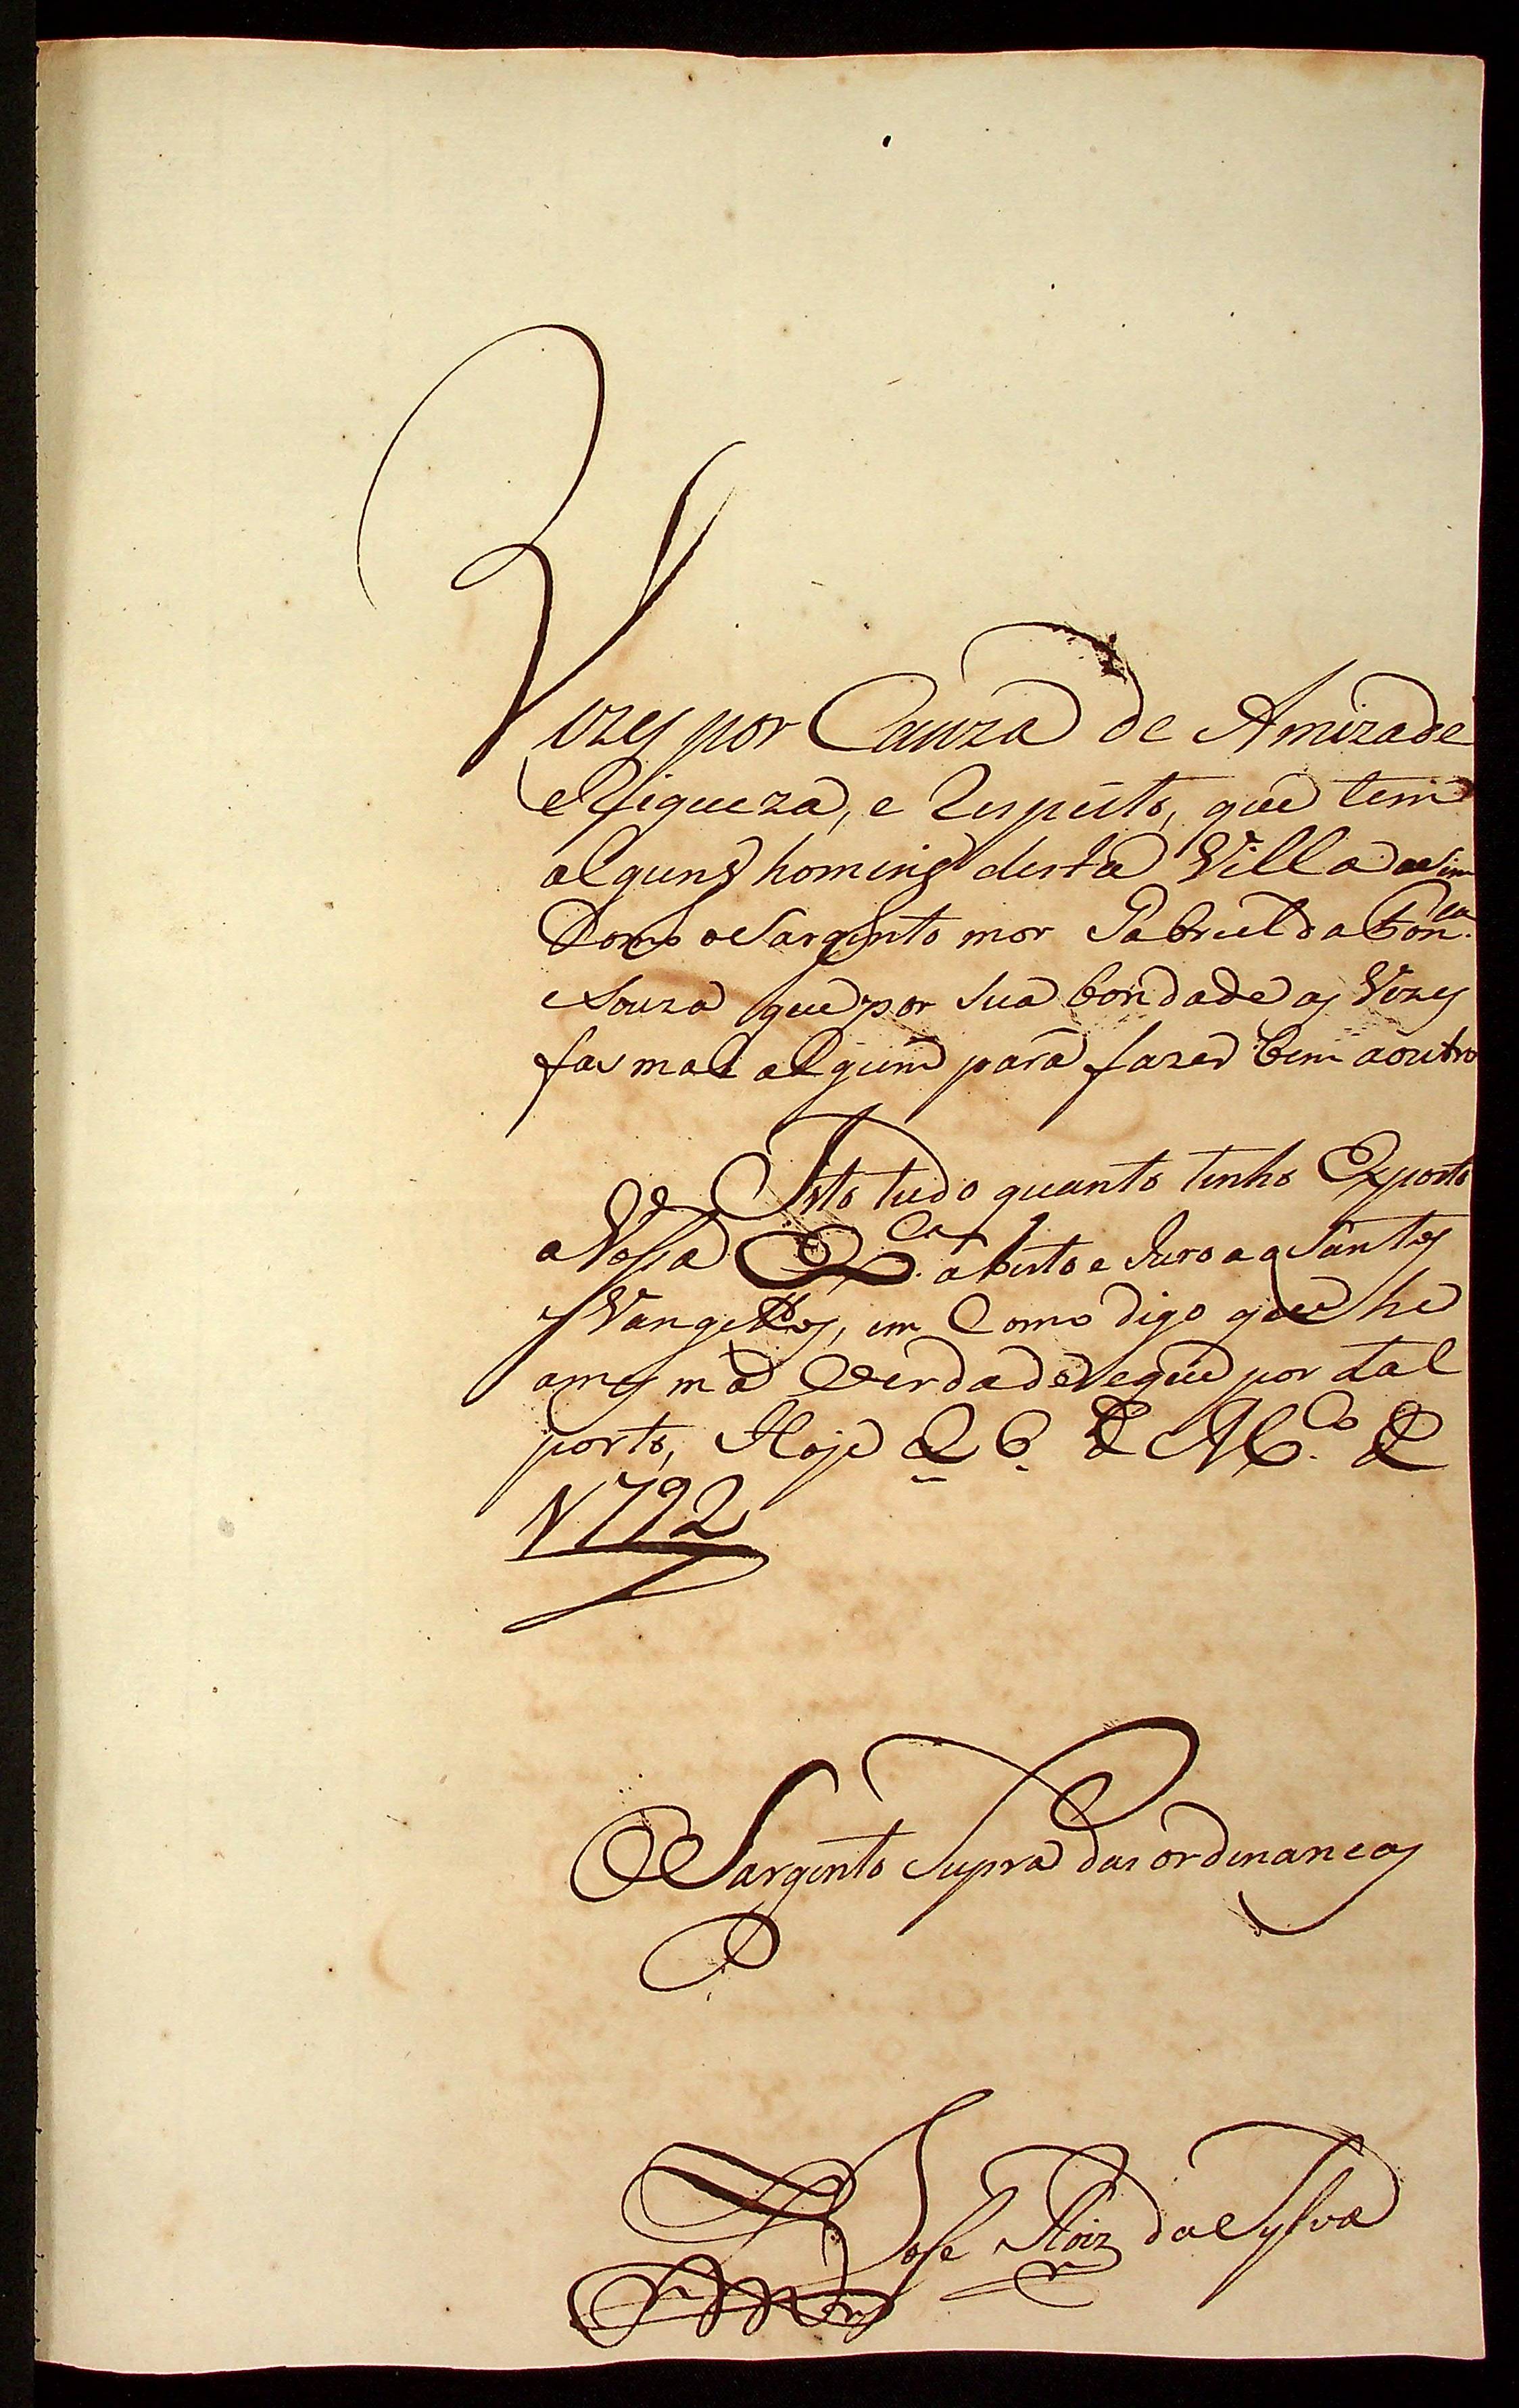 Vozes por Cauza de Amizade
e Riqueza, e Respeito, que tem
alguns homens desta Villa asim
Como o Sargento mor Gabriel da Fon.ca
e Souza que por sua bondade as Vezes
fas mal algum para fazer bem a outro
Isto tudo quanto tenho Exposto
a Vossa Ex.ca atesto e Juro aos Santos
Evangelhos, em Como digo que he
a mesma Verdade e que por tal
porto, Hoje 26 de M.ço de
1792
O Sargento Supra das ordenancas
Joze Roiz da Sylva